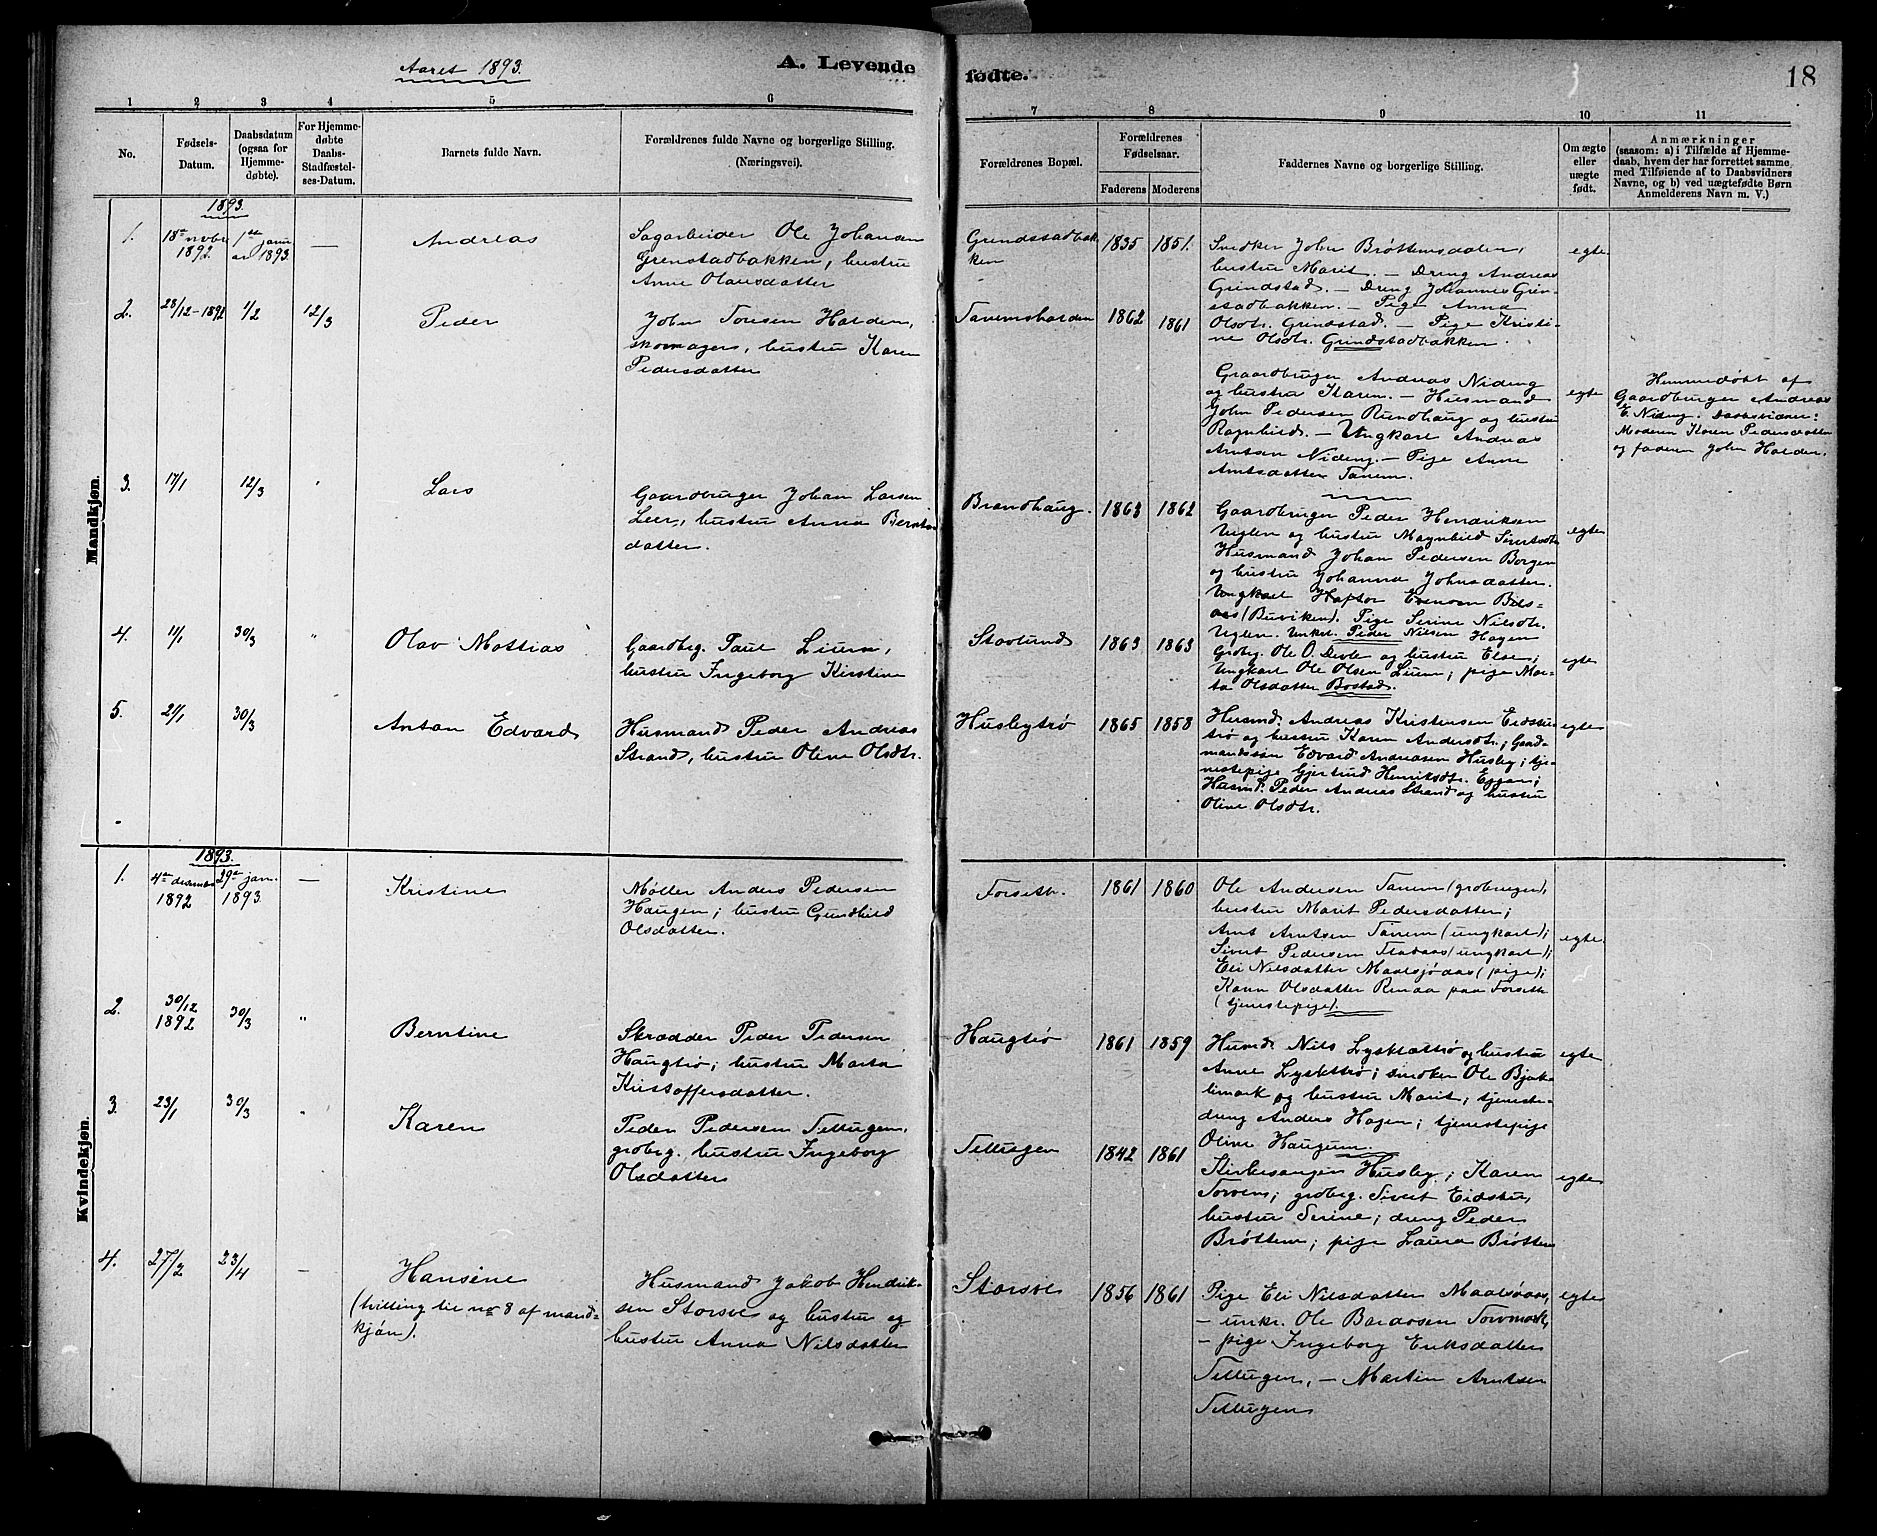 Aaret 1893.
A. Levende
fødte.
18
1 2 3 4 5 6
7 8 9 10 11
No.
Fødsels-Datum.
Daabsdatum (ogsaa for Hjemmedøbte).
For Hjemmedøbte Daabs-Stadfæstelses-Datum.
Barnets fulde Navn.
Forældrenes fulde Navne og borgerlige Stilling.
(Næringsvei).
Forældrenes Bopæl.
Forældrenes Fødselsaar.
Faderens Moderens
Faddernes Navne og borgerlige Stilling.
Om ægte eller uægte født.
Anmærkninger
(saasom: a) i Tilfælde af Hjemmedaab, hvem der har forrettet samme, med Tilføiende af to Daabsvidners Navne, og b) ved uægtefødte Børn Anmelderens Navn m. V.)
Mandkjøn.
1893.
1. 18de novbr 1892. 1ste januar 1893. — Andreas
Sagarbeider Ole Johansen
Grenstadbakken, hustru
Anne Olausdatter
Grendstadbakken
1835 1851.
Snedker John Brøttemsdalen,
hustru Marit. — Dreng Andreas
Grindstad. — Dreng Johannes Grenstadbakken. — Pige Anna
Olsdtr. Grindstad. — Pige Kristine Olsdtr. Grindstadbakken.
egte
2. 28/12-1892 1/2 12/3 Peder
John Tonsen Halden,
skomager, hustru Karen
Pedersdatter
Tanemshalden
1862 1861
Graardbruger Andreas Nideng
og hustru Karen. — Husmand
John Pedersen Rundhaug og hustru
Ragnhild. — Ungkarl Andreas
Arntsen Nideng. — Pige Anne
Arntsdatter Tanem.
egte
Hjemmedøbt af
Gaardbruger Andreas
E. Nideng. Daabsvidner:
Moderen Karen Pedersdatter
og faderen John Halden.
3. 17/1 12/3 " Lars
Gaardbruger Johan Larsen
Leer, hustru Anna Berntsdatter.
Brandhaug.
1863 1862
Gaardbruger Peder Hendriksen
Uglen og hustru Magnhild Sivertsdtr.
Husmand Johan Pedersen Borgen
og hustru Johanna Johnsdatter.
Ungkarl Haftor Evensen Bilsaas (Buviken). Pige Serine Nilsdtr.
Uglen. Unkrl. Peder Nilsen Hagen
egte
4. 11/1 30/3 " Olav Mattias
Gaardbrg. Paul Lium,
hustru Ingeborg Kirstine
Stavlund
1863 1863
Grdbrg. Ole O. Devle og hustru Else;
Ungkarl Ole Olsen Lium; pige Marta Olsdatter Bostad.
egte
5. 21/1 30/3 Anton Edvard
Husmand Peder Andreas
Strand, hustru Oline Olsdtr.
Husbytrø
1865 1858
Husmd. Andreas Kristensen Eidstutrø og hustru Karen Andersdtr.; Gaardmandssøn Edvard Andreasen Husby; tjenestepige Gjertrud Henriksdtr. Eggen;
Husmd. Peder Andreas Strand og hustru
Oline Olsdtr.
egte
Kvindekjøn.
1893.
1. 4de decembr 1892 29de jan. 1893. — Kristine
Møller Anders Pedersen
Haugen; hustru Gundhild
Olsdatter.
Forseth.
1861 1860
Ole Andersen Tanem (grdbruger),
hustru Marit Pedersdatter;
Arnt Arntsen Tanem (ungkarl);
Sivert Pedersen Flabaas (ungkarl);
Eli Nilsdatter Maalsjødas (pige);
Karen Olsdatter Renaa paa Forseth
(tjenestepige).
egte.
2. 30/12 1892 30/3 " Berntine
Skrædder Peder Pedersen
Haugtrø; hustru Marta
Kristoffersdatter.
Haugtrø
1861 1859
Husmd. Nils Lysklættrø og hustru
Anne Lyskttrø; snedker Ole Bjørklimark og hustru Marit; tjenestedreng Anders Hagen; tjenestepige
Oline Haugum.
egte
3. 23/1 30/3 " Karen
Peder Pedersen Tellugen,
grdbrg. hustru Ingeborg
Olsdatter
Tellugen
1842 1861
Kirkesanger Husby; Karen
Torvens; grdbrg. Sivert Eidstu,
hustru Serine; dreng Peder
Brøttem; pige Laura Brøttem
egte
4. 27/2 23/4 — Hansine
(tvilling til no 8 af mandkjøn).
Husmand Jakob Hendriksen Storsve og hustru og
hustru Anna Nilsdatter
Storsve
1856 1861
Pige Eli Nilsdatter Maalsøaas,
— unkr. Ole Bardosen Torvmark,
— pige Ingeborg Eriksdatter
Tellugen, — Martin Arntsen
Tellugen
egte